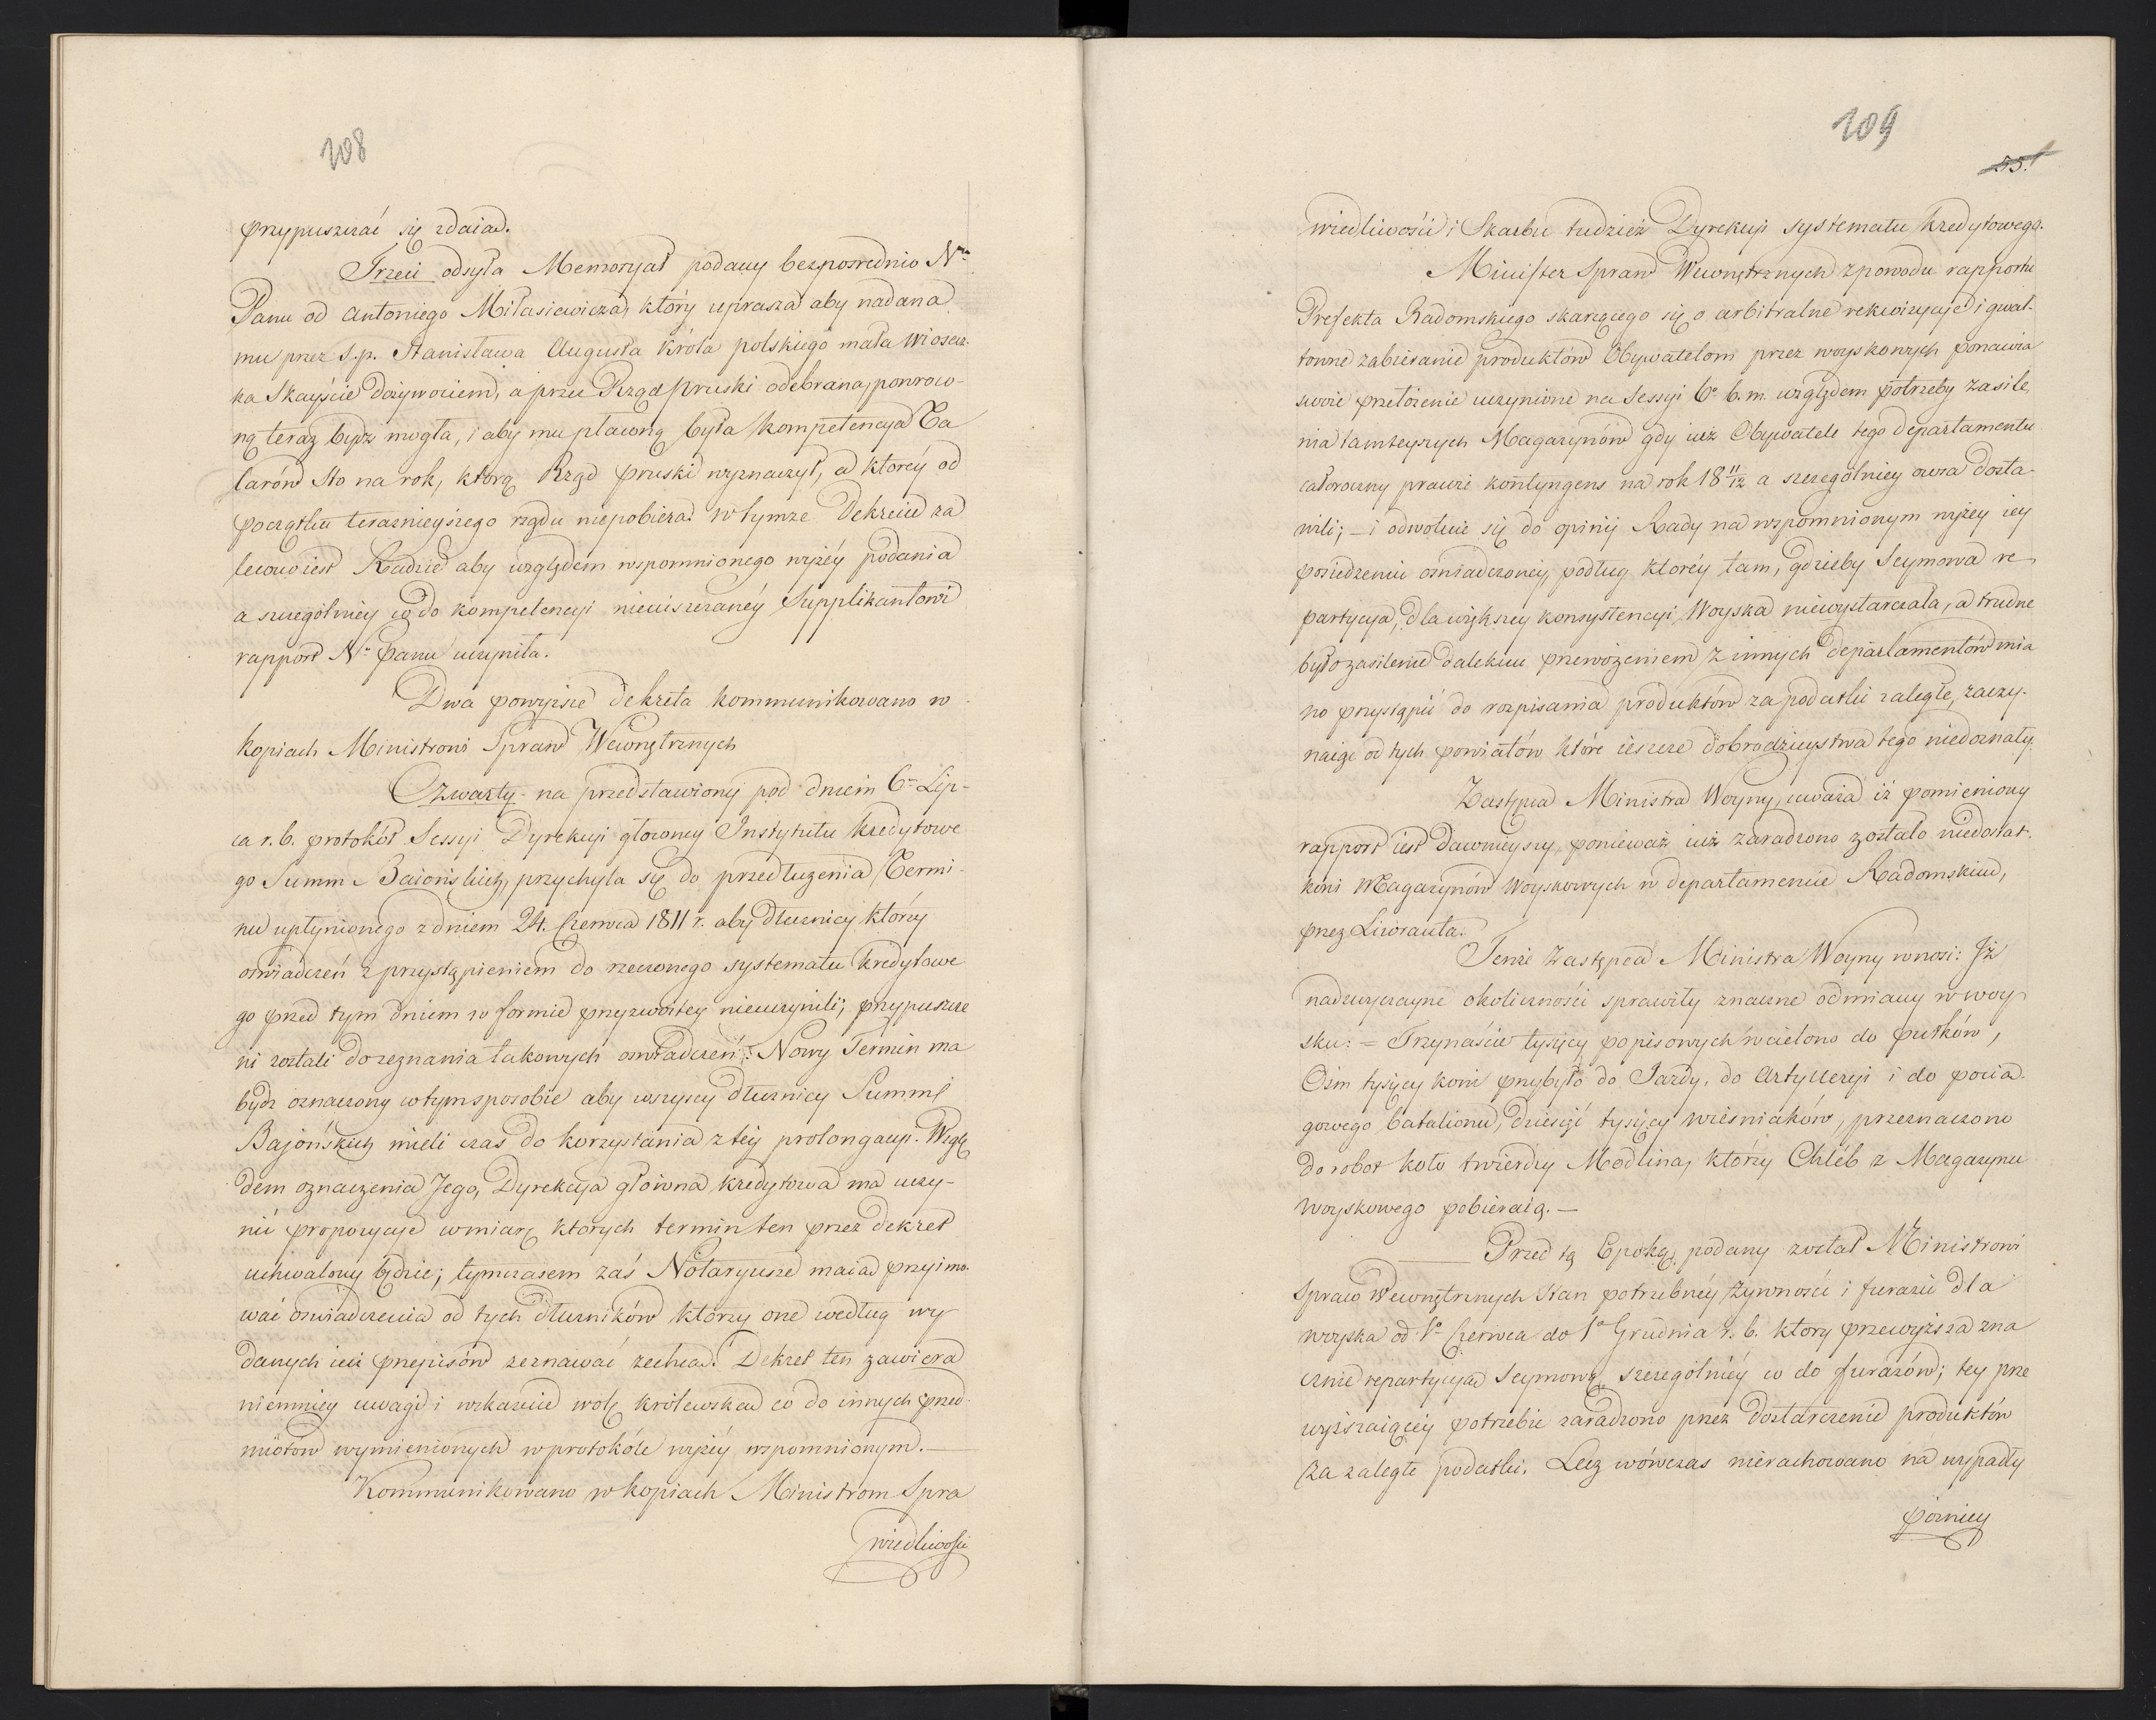 108
przypuszczać się zdaią.
Trzeci odsyła Memoryał podany bezpośrednio Nmu
Panu od Antoniego Miłasiewicza, który uprasza aby nadana
mu przez S.p. Stanisława Augusta Króla polskiego mała wiosecz-
ka Skayście dożywociem, a przez Rząd Pruski odebrana, powróco-
ną teraz bydź mogła, i aby mu płaconą była kompetencya Ta
larów Sto na rok, którą Rząd pruski wyznaczył, a którey od
początku teraznieyszego rządu niepobiera. W tymże Dekrecie za
lecono iest Radzie aby względem wspomnionego wyżéy podania
a szczególniey co do kompetencyi nieuiszczanéy Supplikantowi
rapport N. Panu uczyniła.
Dwa powyższe dekreta kommunikowano w
kopiach Ministrowi Spraw Wewnętrznych
Czwarty na przedstawiony pod dniem 6m Lip-
ca r. b. protokół Sessyi Dyrekcyi główney Instytutu kredytowe
go Summ Baiońskich, przychyla się do przedłużenia Termi-
nu upłynionego z dniem 24. Czerwca 1811 r. aby dłużnicy którzy
oświadczeń z przystąpieniem do rzeczonego systematu kredytowe
go przed tym dniem w formie przyzwoitey nieuczynili, przypuszcze
ni zostali do zeznania takowych oświadczeń. Nowy Termin ma
bydź oznaczony w tym sposobie aby wszyscy dłużnicy Summ
Bajońskich mieli czas do korzystania z téy prolongacyi. Wzglę
dem oznaczenia Jego, Dyrekcya główna kredytowa ma uczy-
nić propozycye w miarę których termin ten przez dekret
uchwalony będzie; tymczasem zaś Notaryusze maią przyimo-
wać oświadczenia od tych dłużników którzy one według wy
danych iuż przepisów zeznawać zechcą. Dekret ten zawiera
niemniey uwagi i wskazuie wolę królewską co do innych przed-
miotów wymienionych w protokóle wyżéy wspomnionym.—
Kommunikowano w kopiach Ministrom Spra
wiedliwości
109
55.
wiedliwości i Skarbu tudzież Dyrekcyi systematu kredytowego.
Minister Spraw Wewnętrznych z powodu rapportu
Prefekta Radomskiego skarżącego się o arbitralne rekwizycye i gwał-
towne zabieranie produktów Obywatelom przez woyskowych ponawia
swoie przełożenie uczynione na Sessyi 6o b. m. względem potrzeby zasile
nia tamteyszych Magazynów gdy iuż Obywatele tego departamentu
całoroczny prawie kontyngens na rok 18 11/12 a szczególniey owsa dosta-
wili; – i odwołuie się do opinij Rady na wspomnionym wyżey iey
posiedzeniu oświadczoney, podług któréy tam, gdzieby Seymowa re
partycya, dla większey konsystencyi Woyska niewystarczała, a trudne
było zasilenie dalekiem przewożeniem z innych departamentów mia
no przystąpić do rozpisania produktów za podatki zaległe, zaczy-
naiąc od tych powiatów które ieszcze dobrodzieystwa tego niedoznały.
Zastępca Ministra Woyny, uważa iż pomieniony
rapport iest dawnieyszy, ponieważ iuż zaradzono zostało niedostat-
kowi Magazynów Woyskowych w departamencie Radomskim,
przez Liweranta.
Tenże Zastępca Ministra Woyny wnosi: Iż
nadzwyczayne okoliczności sprawiły znaczne odmiany w woy
sku: = Trzynaście tysięcy popisowych wcielono do pułków,
Ośm tysięcy koni przybyło do Jazdy, do Artylleryi i do pocią-
gowego batalionu, dziesięć tysięcy wieśniaków, przeznaczono
do robot koło twierdzy Modlina, którzy Chléb z Magazynu
woyskowego pobieraią.—
Przed tą Epoką, podany został Ministrowi
Spraw Wewnętrznych Stan potrzebnéy żywności i furażu dla
woyska od 1o Czerwca do 1o Grudnia r. b. który przewyższa zna
cznie repartycyą Seymową, szczególniéy co do furażów; tey prze
wyższaiącey potrzebie zaradzono przez dostarczenie produktów
za zaległe podatki. Lecz wówczas nierachowano na wypadły
pózniey